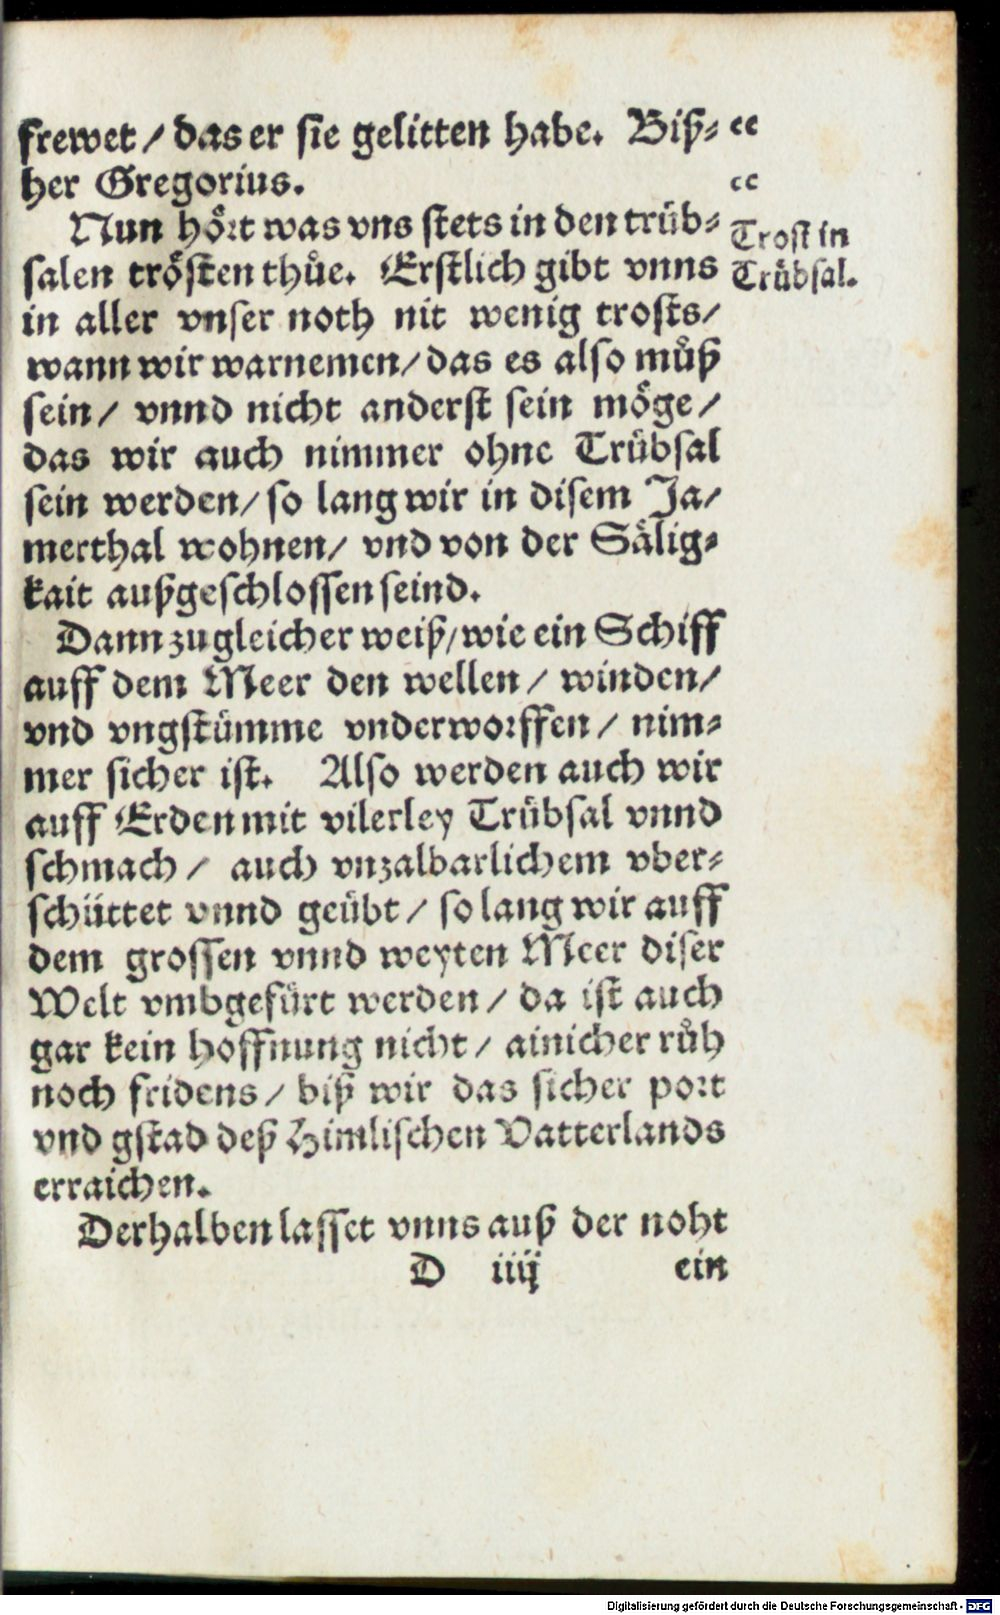 frewet / das er sie gelitten habe. Biß- “
her Gregorius. “
Nun hört was vns stets in den trüb-
salen trösten thůe. Erstlich gibt vnns
Trost in
Trůbsal.
in aller vnser noth nit wenig trosts/
wann wir warnemen/ das es also můß
sein/ vnnd nicht anderst sein möge/
das wir auch nimmer ohne Trübsal
sein werden/ so lang wir in disem Ja/
merthal wohnen/ vnd von der Sälig-
kait außgeschlossen seind.
Dann zu gleicher weiß/ wie ein Schiff
auff dem Meer den wellen / winden/
vnd vngstümme vnderworffen / nim-
mer sicher ist. Also werden auch wir
auff Erden mit vilerley Trübsal vnnd
schmach / auch vnzalbarlichem vber-
schüttet vnnd geübt / so lang wir auff
dem grossen vnnd weyten Meer diser
Welt vmbgefürt werden / da ist auch
gar kein hoffnung nicht / ainicher růh
noch fridens / biß wir das sicher port
vnd gstad deß Himlischen Vatterlands
erraichen.
Derhalben lasset vnns auß der noht
D iiij ein
Digitalisierung gefördert durch die Deutsche Forschungsgemeinschaft - DFG